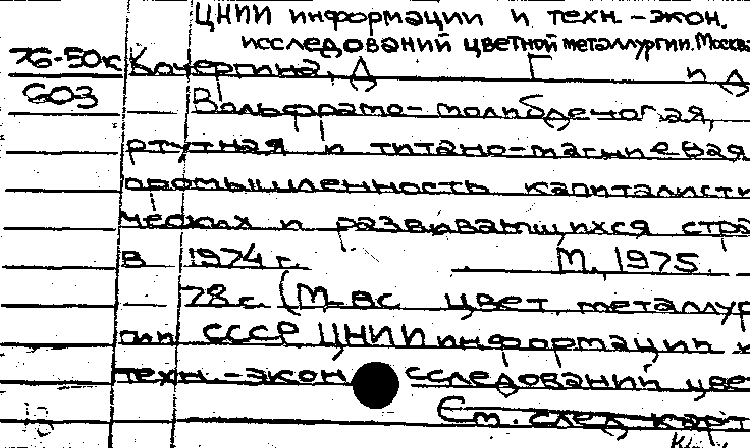 ЦНИИ информации и техн.-экон.
исследований цветной металлургии. Москва
76-50к Кочергина, Д Г и Д
603 Вольфрамо-молибденовая,
ртутная и титано-магниевая
промышленность капиталисти
ческих и развивающихся стра
в 1974 г. М., 1975.
78 с. (М-во цвет. металлур
гии СССР ЦНИИ информации и
техн.-экон сследований цве
См. след карт